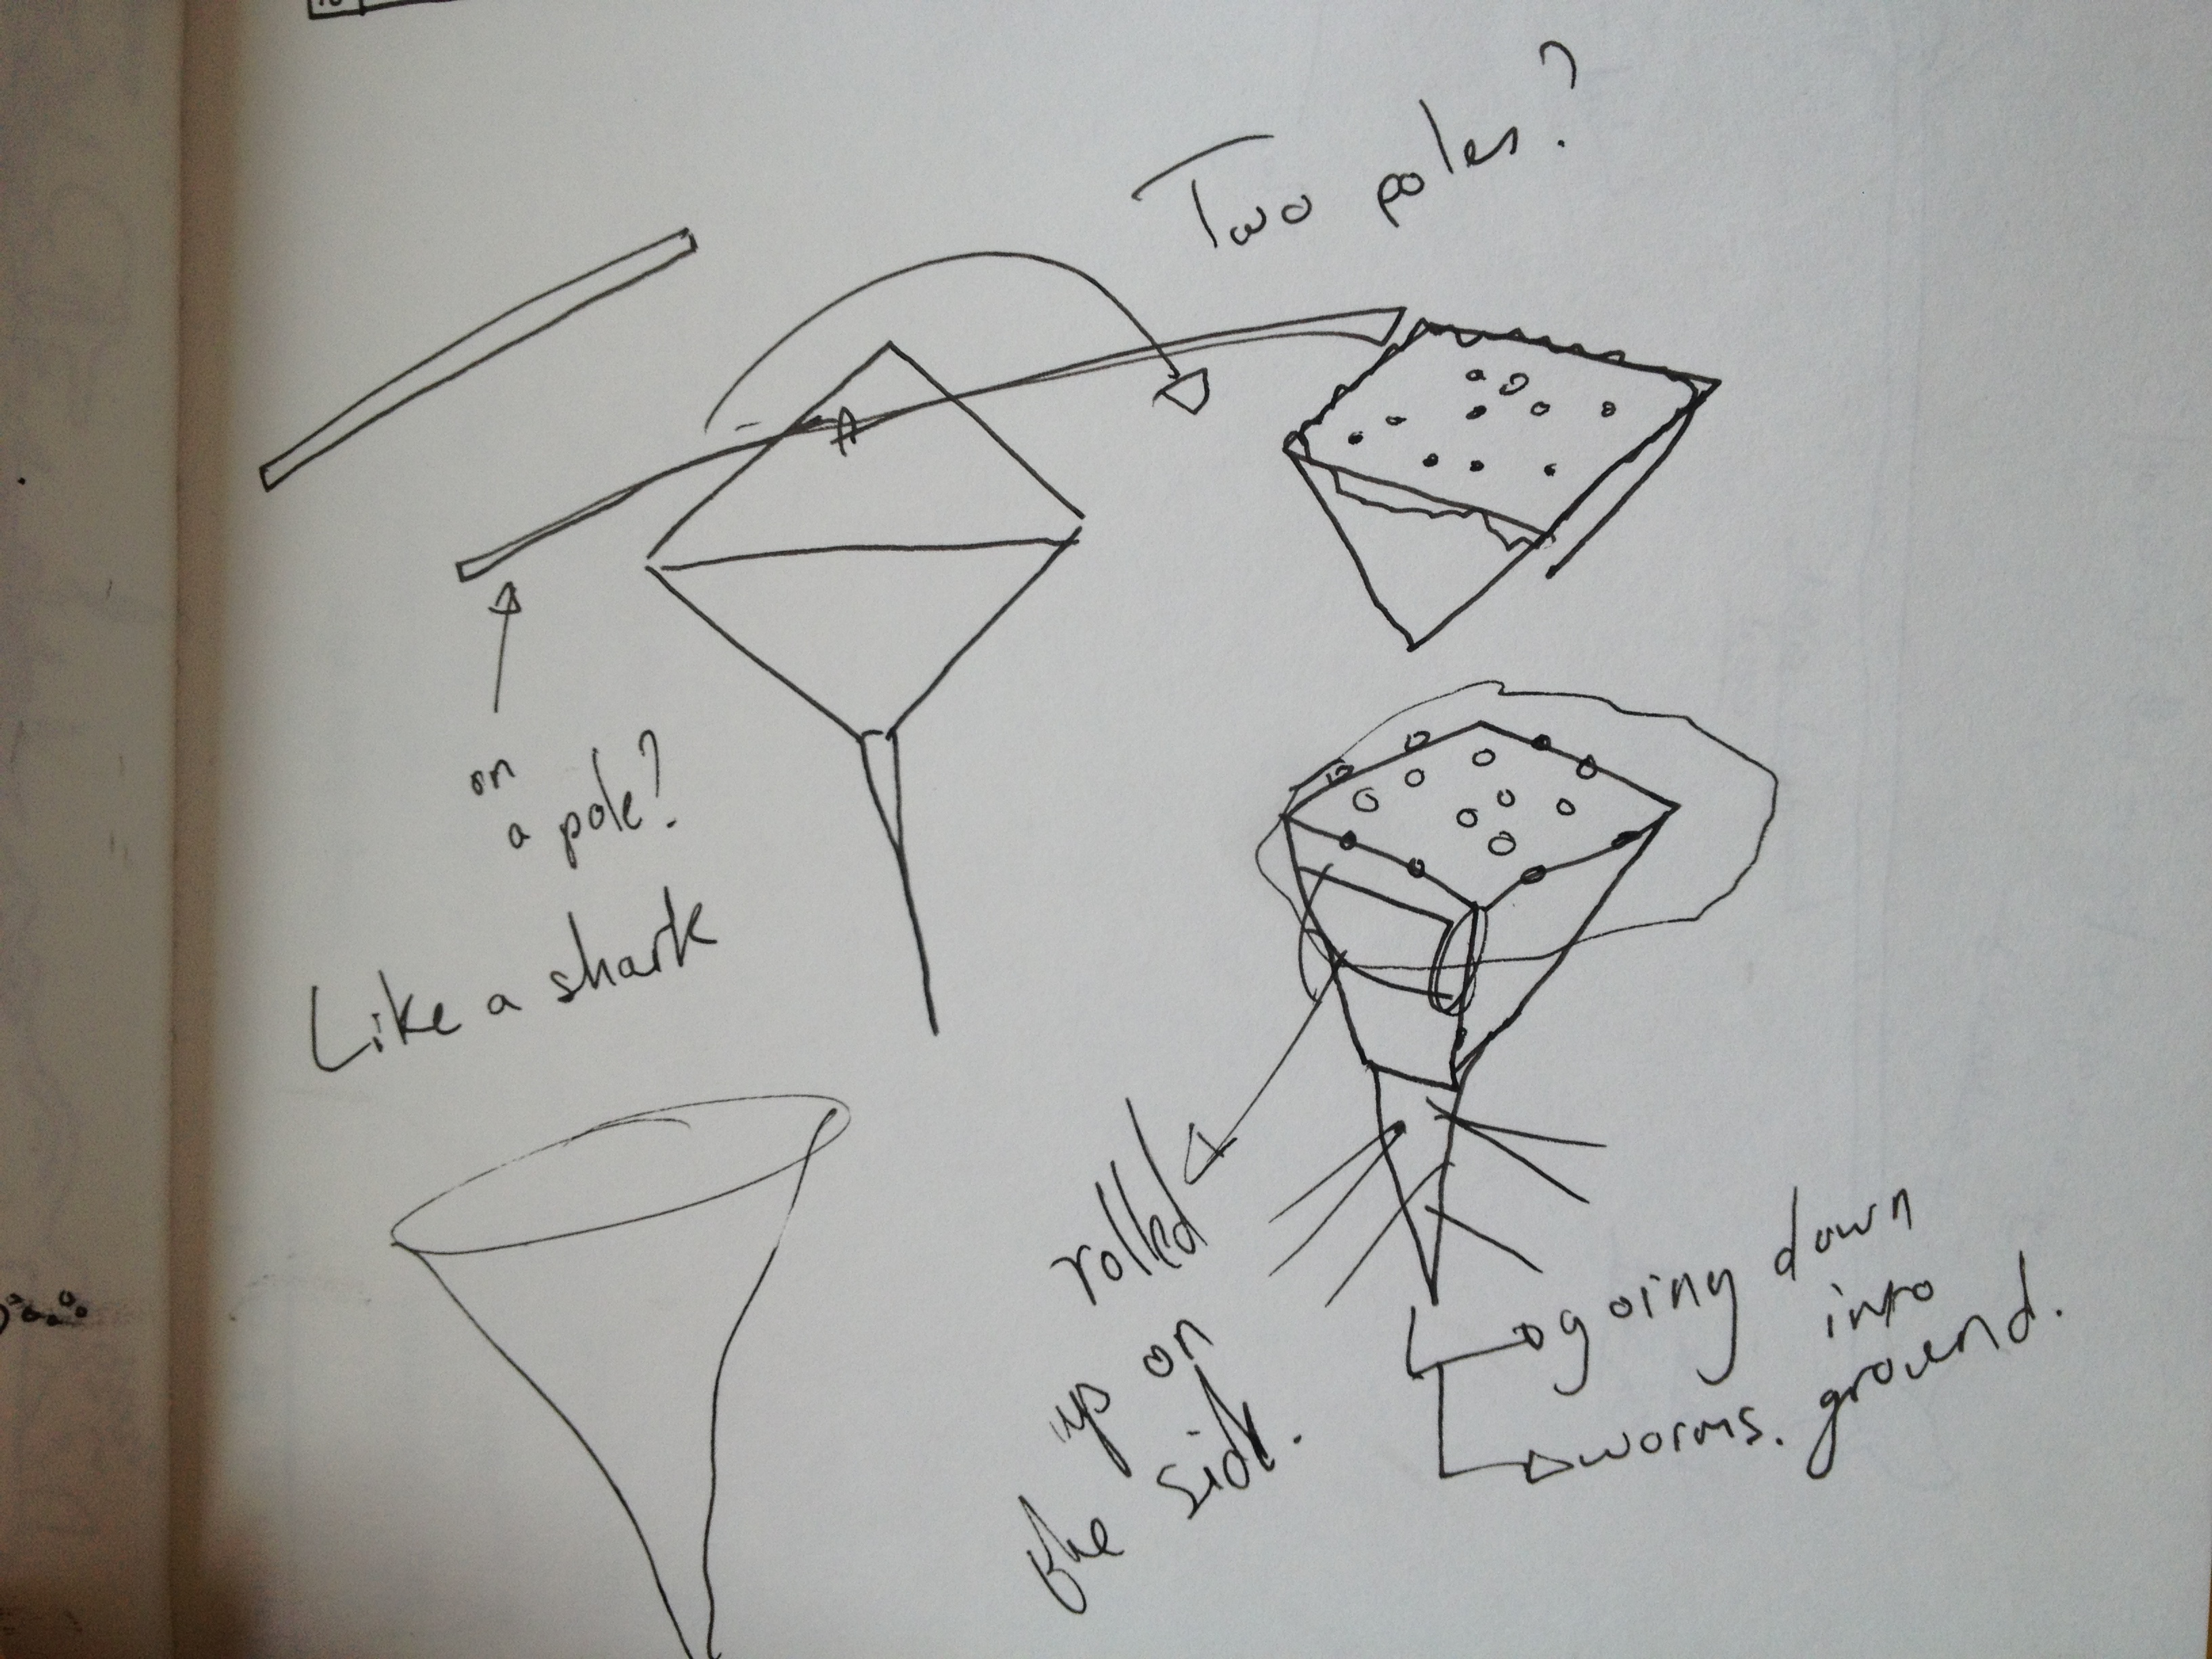 Two poles?
on
a pole?
Like a shark
rolled
up on
the side.
going down
into
ground.
worms.